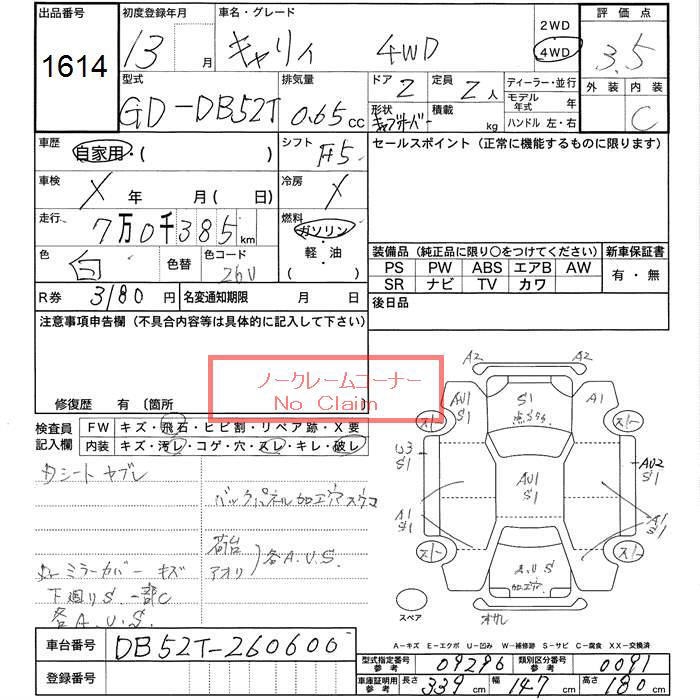 出品番号 初度登録年月 車名・グレード 2WD 評価点
1614 13月 キャリィ 4WD 4WD 3.5
型式 排気量 ドア 2 定員 2人 ディーラー・並行 外装 内装
GD-DB52T 0.65cc 形状 積載 kg モデル年式 年 C
ハンドル 左・右
車歴 自家用・( ) シフト F5 セールスポイント(正常に機能するものに限ります)
車検 X 年 月( 日) 冷房 X
走行 7万0千385km 燃料 ガソリン・軽・油
色 白 色替 色コード 26U
装備品(純正品に限り○をつけてください) 新車保証書
PS PW ABS エアB AW 有・無
SR ナビ TV カワ
R券 3180円 名変通知期限 月 日 後日品
注意事項申告欄(不具合内容等は具体的に記入して下さい)
ノークレームコーナー
No Claim
修復歴 有 〔箇所
検査員記入欄 FW キズ・飛石・ヒビ割・リペア跡・X要
内装 キズ・汚レ・コゲ・穴・スレ・キレ・破レ
シートヤブレ
バックパネル加工穴スウコ
荷台
アオリ
各A.U.S.
ミラーカバー キズ
下廻りS.一部C
各A.U.S.
A2 A2
AU1 S1 S1 A1
スレー スレー
U3 S1 AU1 S1 AU2 S1
A1 S1 A1 S1
スレー A.U.S 加工穴 スレー
スペア オサレ
A-キズ E-エクボ U-凹み W-補修跡 S-サビ C-腐食 XX-交換済
車台番号 DB52T-260600
型式指定番号 参考 09296 類別区分番号 参考 0091
登録番号
車庫証明用 参考 長さ 339cm 幅 147cm 高さ 180cm